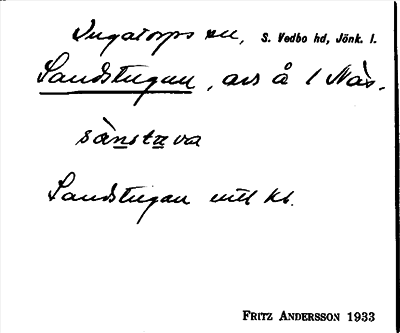 Ingatorps sn, S. Vedbo hd, Jönk. l.
Sandstugan, avs å 1 Näs.
sànstava
Sandstugan enl kb.
FRITZ ANDERSSON 1933